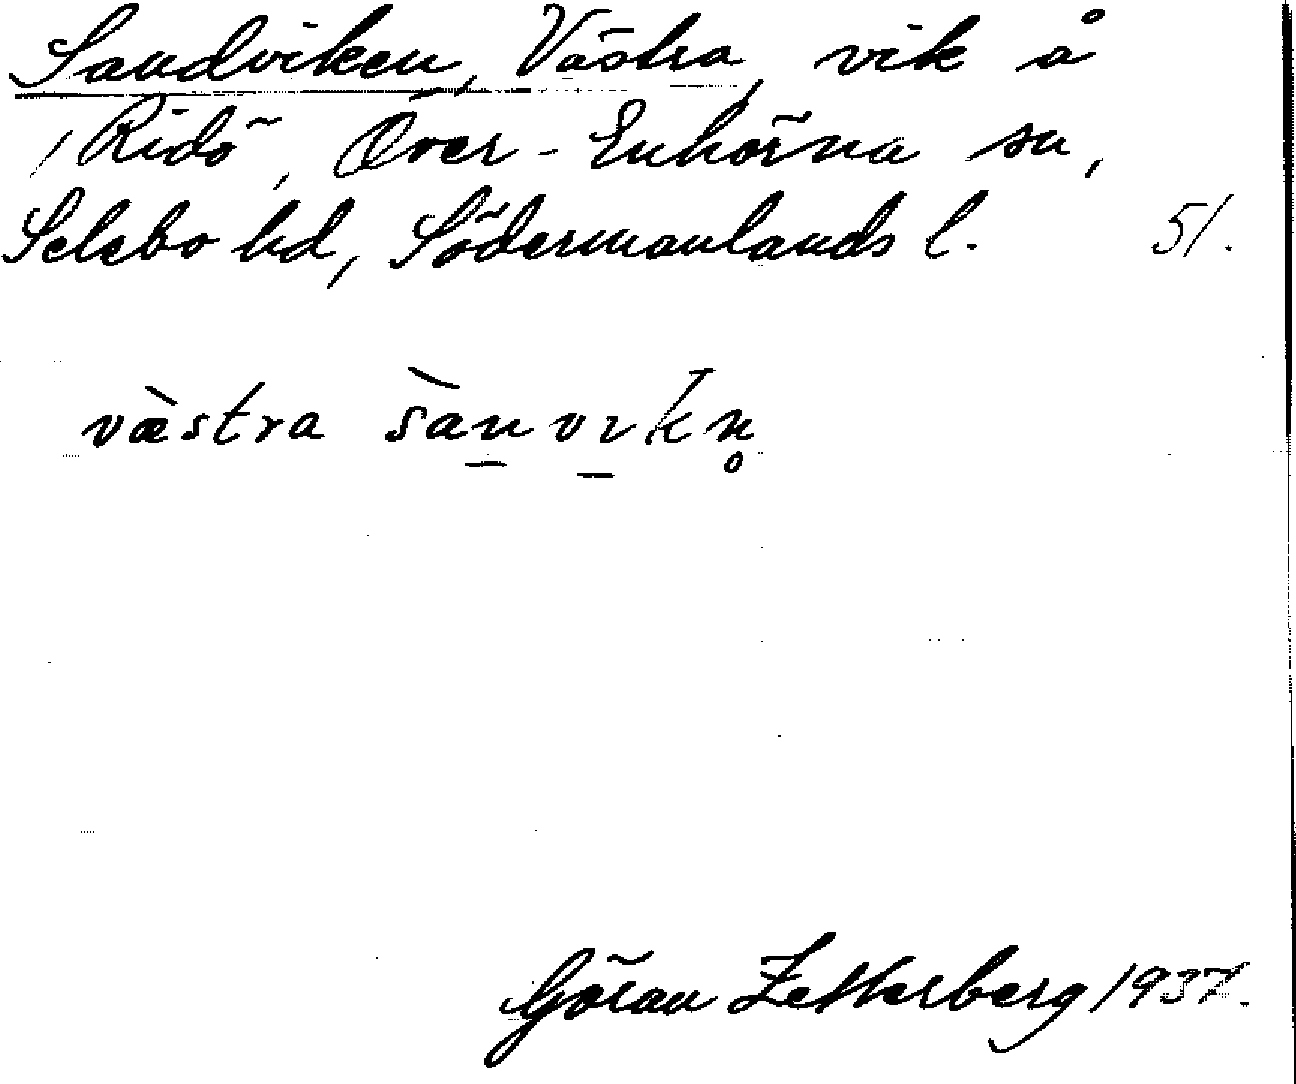 Sandviken, Västra, vik å
Ridö, Över-Enhörna sn,
Selebo hd, Södermanlands l. 51.
væ̀stra sànvɩkn̥
Göran Zetterberg 1937.